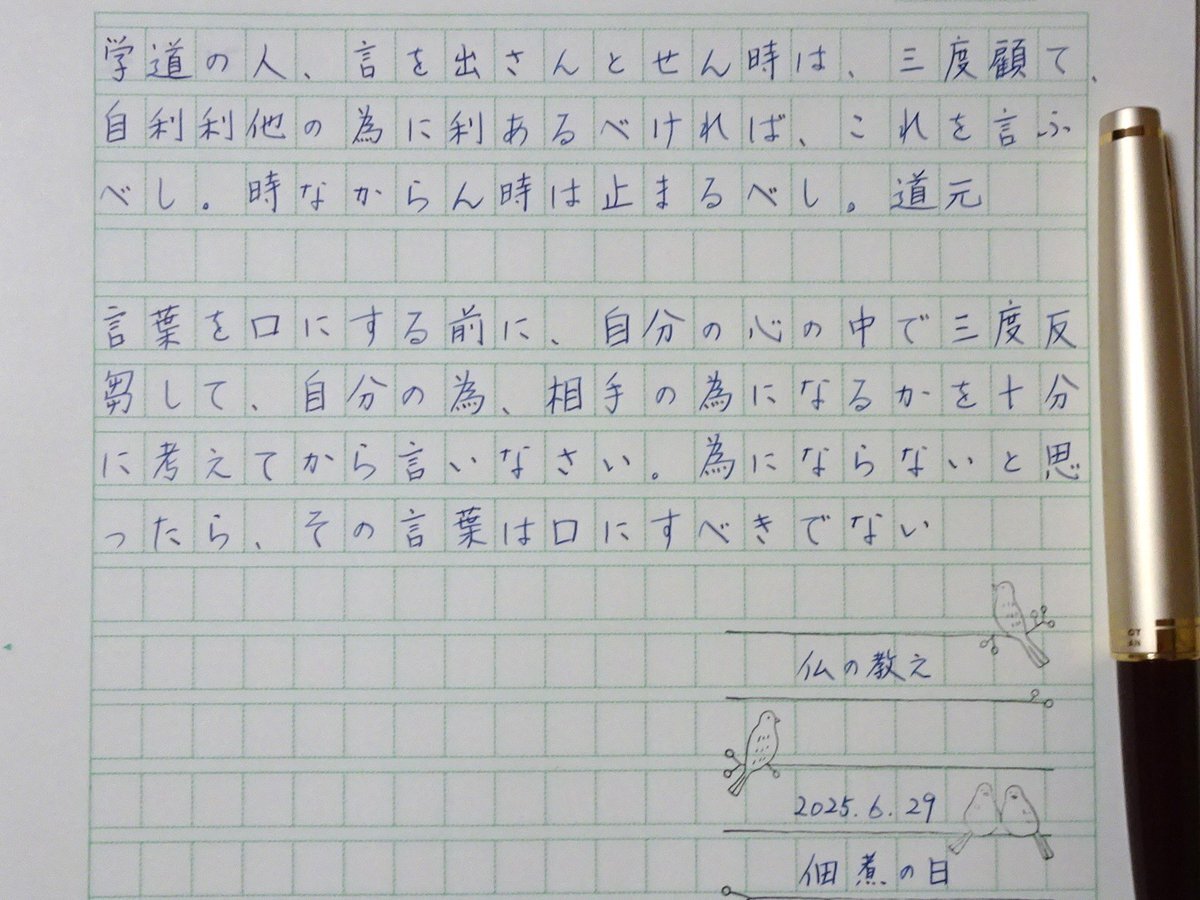 学道の人、言を出さんとせん時は、三度顧て、
自利利他の為に利あるべければ、これを言ふ
べし。時なからん時は止まるべし。道元
言葉を口にする前に、自分の心の中で三度反
芻して、自分の為、相手の為になるかを十分
に考えてから言いなさい。為にならないと思
ったら、その言葉は口にすべきでない
仏の教え
2025.6.29
佃煮の日